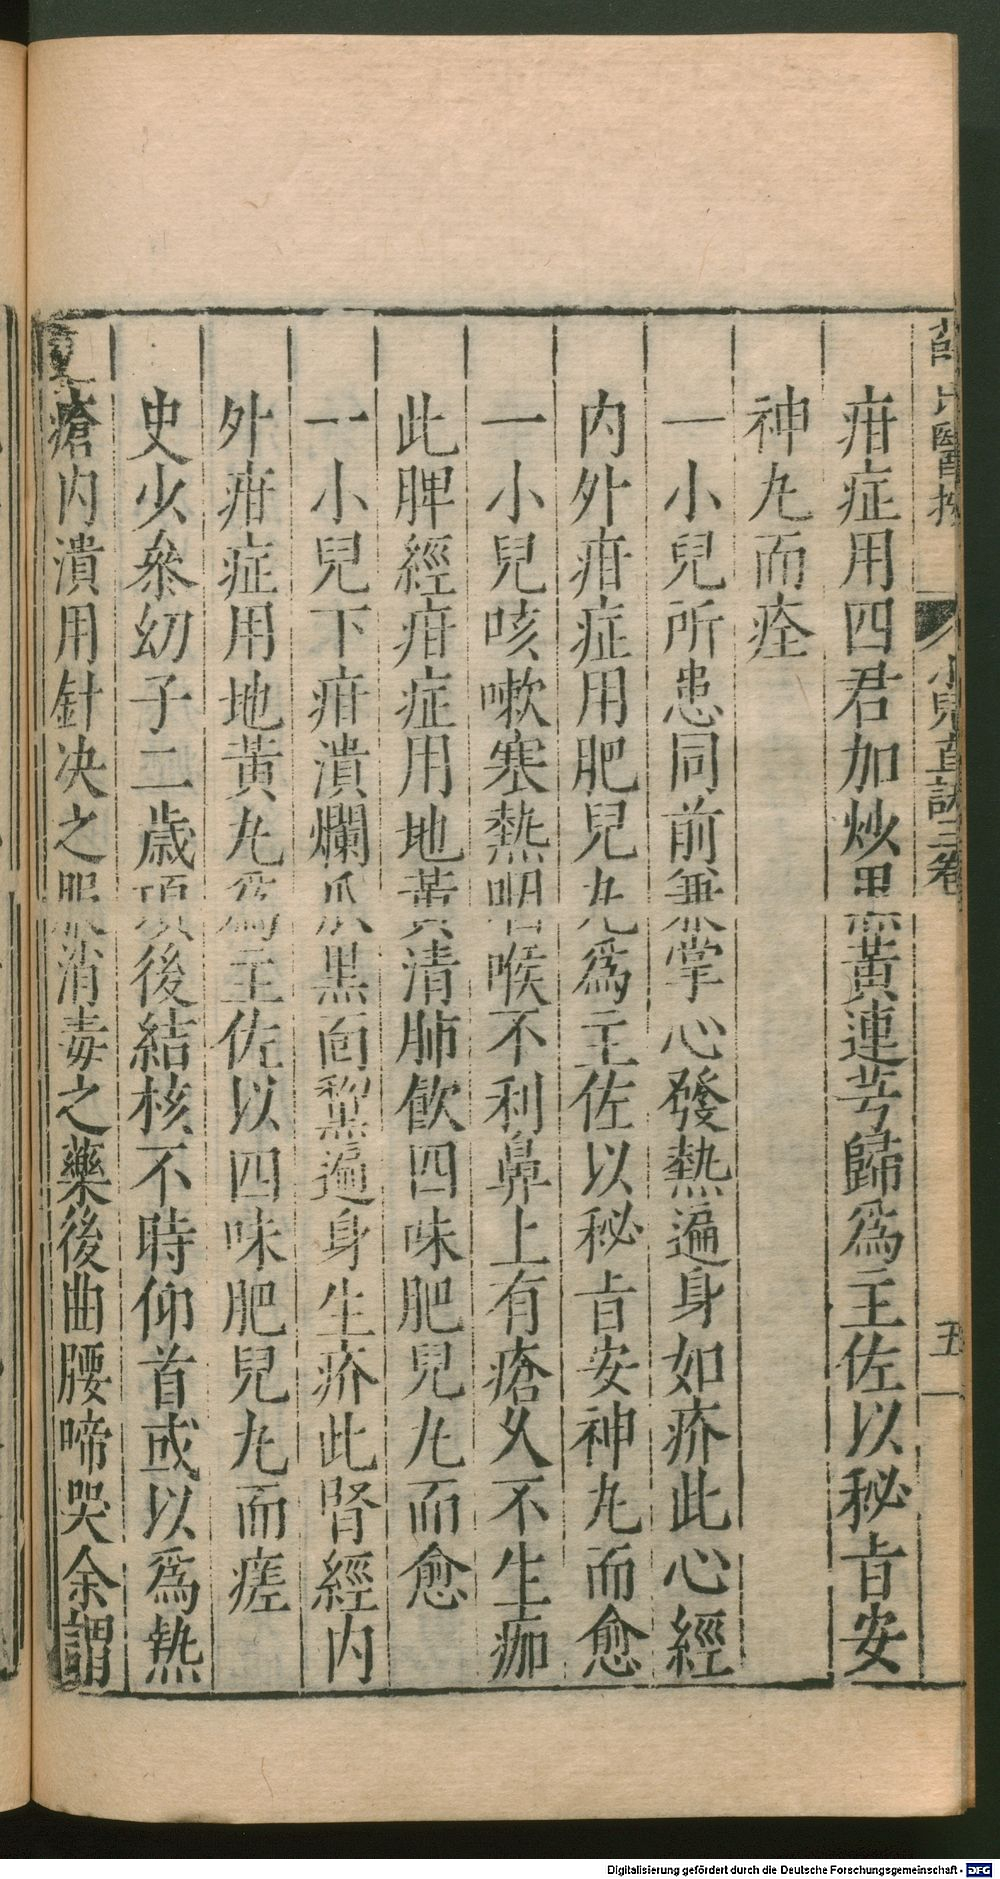 小兒直訣三卷
五
疳症用四君加炒黑黃連芍歸為主佐以秘旨安
神丸而痊
一小兒所患同前兼掌心發熱遍身如疥此心經
内外疳症用肥兒丸為主佐以秘旨安神丸而愈
一小兒咳嗽寒熱咽喉不利鼻上有瘡久不生痂
此脾經疳症用地黃清肺飲四味肥兒丸而愈
一小兒下疳潰爛爪黑面黧遍身生疥此腎經内
外疳症用地黃丸為主佐以四味肥兒丸而瘥
史少叅幼子二歲項後結核不時仰首或以為熱
瘡内潰用針决之服消毒之藥後曲腰啼哭余謂
Digitalisierung gefördert durch die Deutsche Forschungsgemeinschaft - DFG